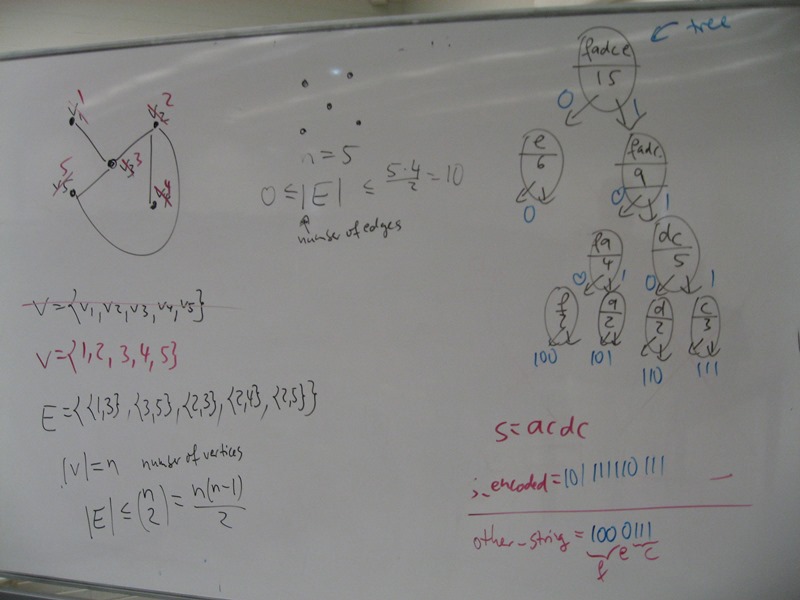 1
v1
2
v2
3
v3
5
v5
4
v4
n = 5
0 ≤ |E| ≤ 5·4/2 = 10
number of edges
V = {v1, v2, v3, v4, v5}
V = {1, 2, 3, 4, 5}
E = {{1,3}, {3,5}, {2,3}, {2,4}, {2,5}}
|V| = n number of vertices
|E| ≤ (n 2) = n(n-1)/2
tree
fadce
15
0 1
e
6
fadc
9
0
0 1
fa
4
dc
5
0 1
0 1
f
2
a
2
d
2
c
3
100 101 110 111
s = acdc
s_encoded = 101 111 110 111
other_string = 1000111
f e c